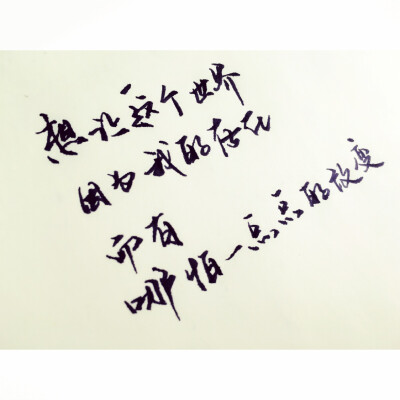 想让这个世界
因为我的存在
而有
哪怕一点点的改变